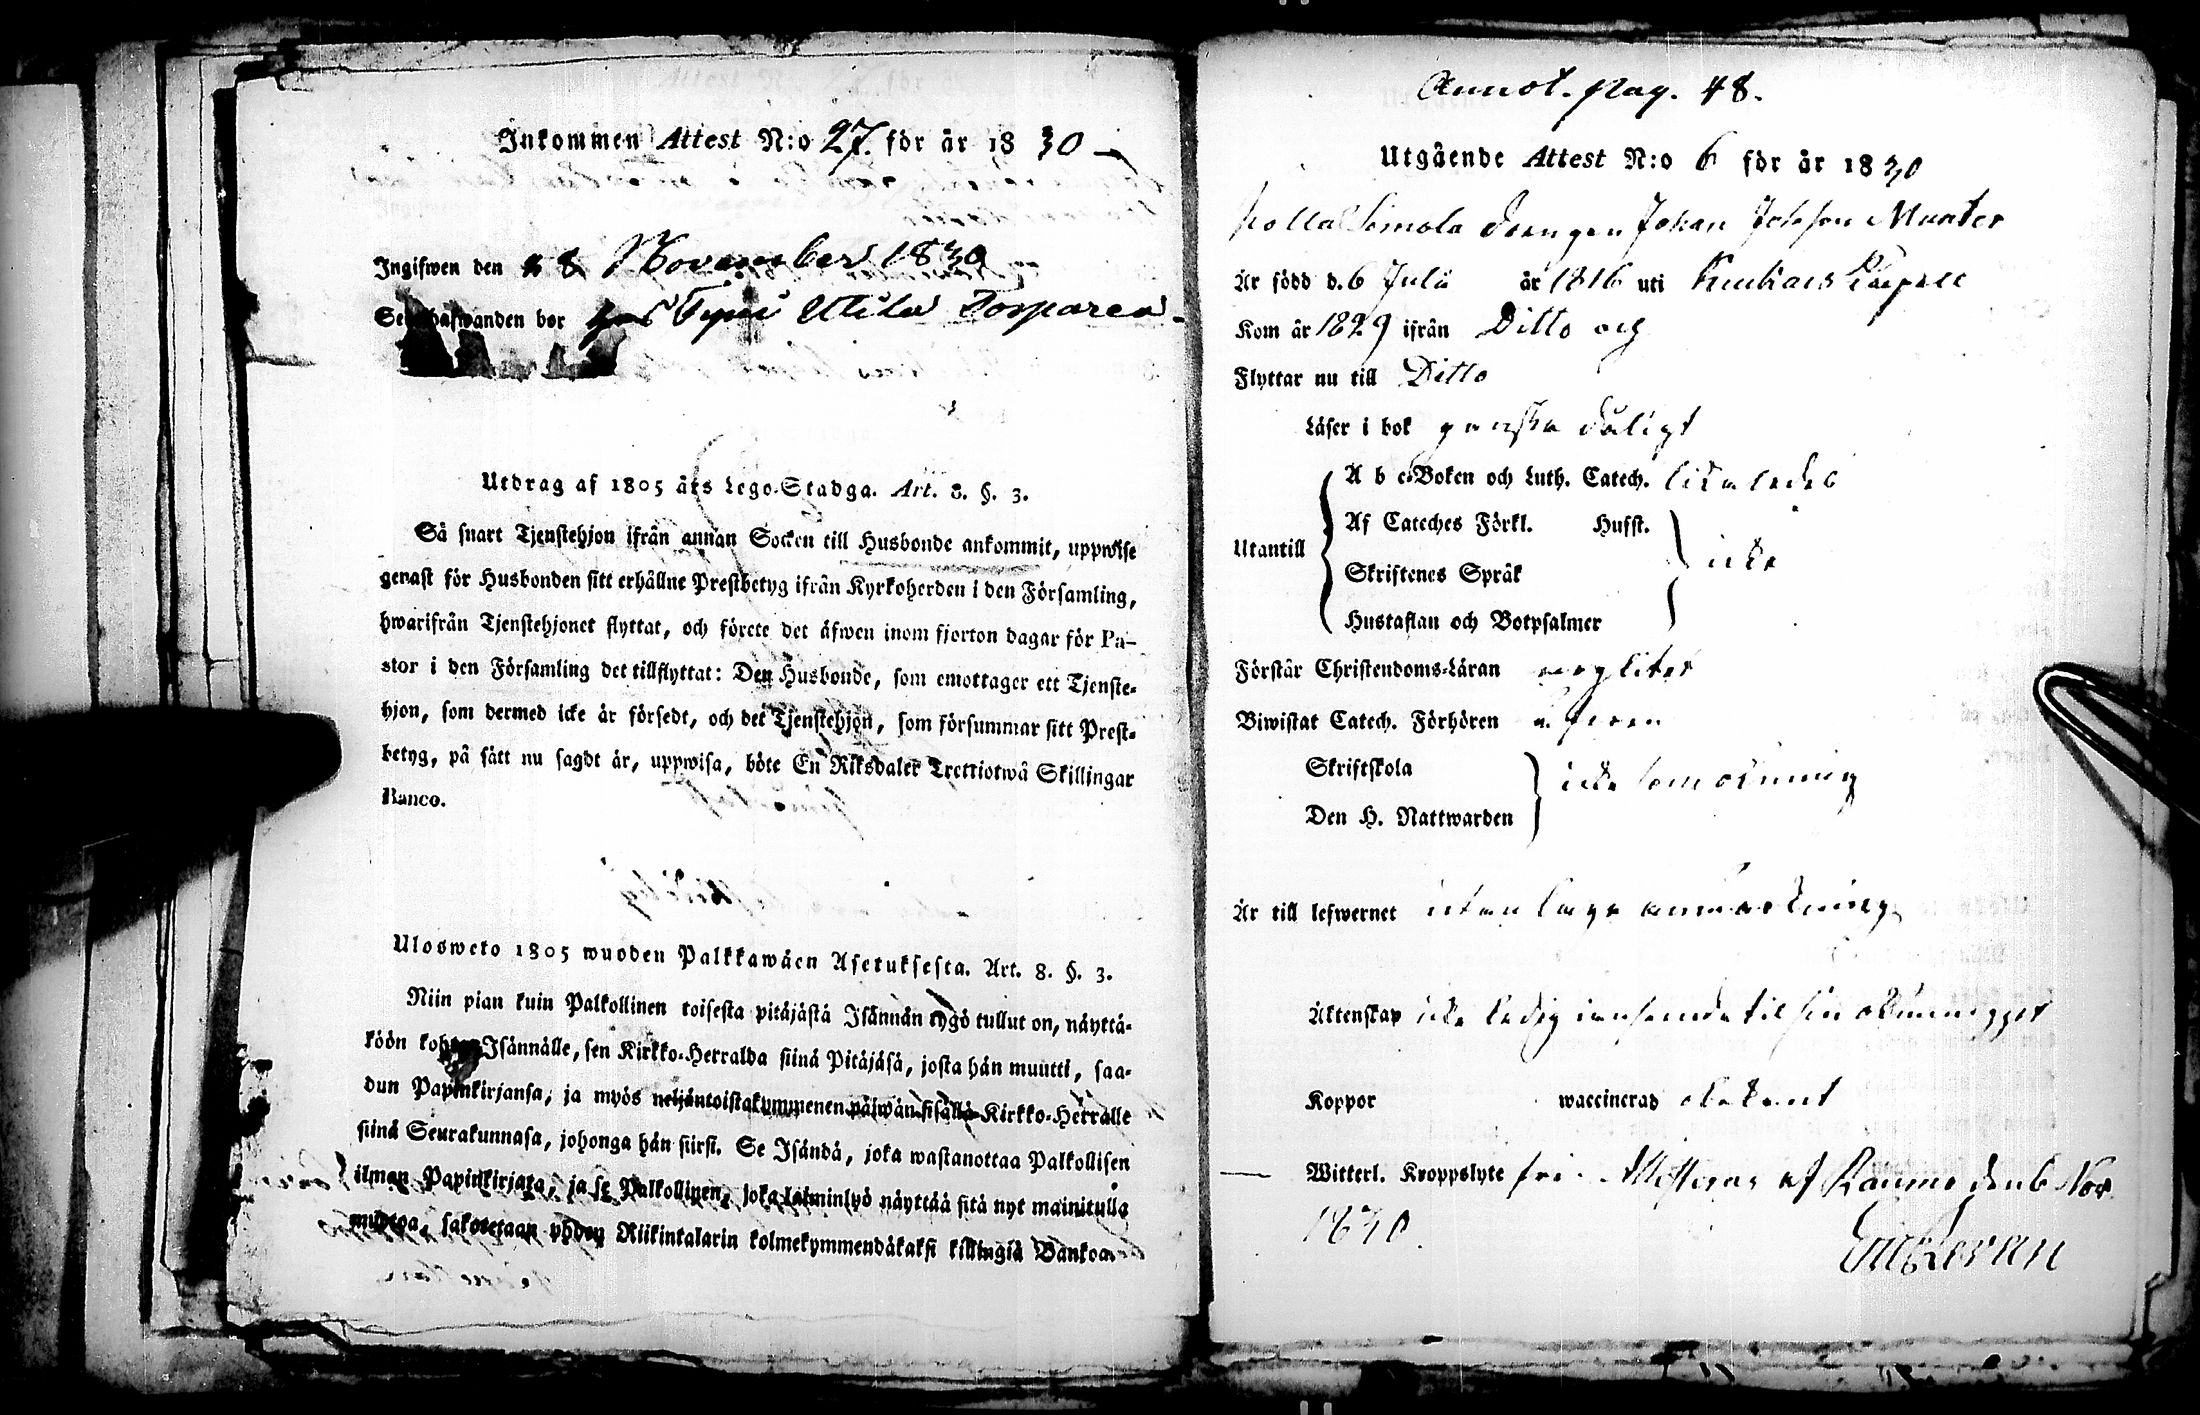 Inkommen Attest N:o 27. för år 1830
Ingifwen den 8 November 1830
bor hos Torparen
Utdrag af 1805 års Lego-Stadga. Art. 8. §. 3.
Så snart Tjenstehjon ifrån annan Socken till Husbonde ankommit, uppwise
genast för Husbonden sitt erhållne Prestbetyg ifrån Kyrkoherden i den Församling,
hwarifrån Tjenstehjonet flyttat, och förete det äfwen inom fjorton dagar för Pa-
stor i den Församling det tillflyttat: Den Husbonde, som emottager ett Tjenste-
hjon, som dermed icke är försedt, och det Tjenstehjon, som försummar sitt Prest-
betyg, på sätt nu sagdt är, uppwisa, böte En Riksdaler Trettiotwå Skillingar
Banco.
Ulosweto 1805 wuoden Palkkawäen Asetuksesta. Art. 8. §. 3.
Niin pian kuin Palkollinen toisesta pitäjästä Isännän tygö tullut on, näyttä-
köön kohta Isännälle, sen Kirkko-Herralda siinä Pitäjäsä, josta hän muutti, saa-
dun Papinkirjansa, ja myös neljäntoistakymmenen päiwän sisällä Kirkko-Herralle
siinä Seurakunnasa, johonga hän siirsi. Se Isändä, joka wastanottaa Palkollisen
ilman Papinkirjata, ja se Palkollinen, joka laiminlyö näyttää sitä nyt mainitulla
muotoa, sakotetaan yhden Riikintalarin kolmekymmendäkaksi killingiä Bankoa.
Annot. pag. 48.
Utgående Attest N:o 6 för år 1830
Drengen Johan Johsson Munter
Är född d. 6 Julii år 1816 uti Capell
Kom år 1829 ifrån Ditto och
Flyttar nu till Ditto
Läser i bok ganska dåligt
A b c-Boken och Luth. Catech. likaledes
Af Cateches Förkl. Husst.
Utantill
Skriftenes Språk icke
Hustaflan och Botpsalmer
Förstår Christendoms-Läran
Biwistat Catech. Förhören
Skriftskola
icke som okunnig
Den H. Nattwarden
Är till lefwernet utan laga anmärkning
Äktenskap icke ledig i anseende til sin okunnighet
Koppor waccinerad obekant
Witterl. Kroppslyte fri. Attesteras af Raumo den 6 Nov
1830.